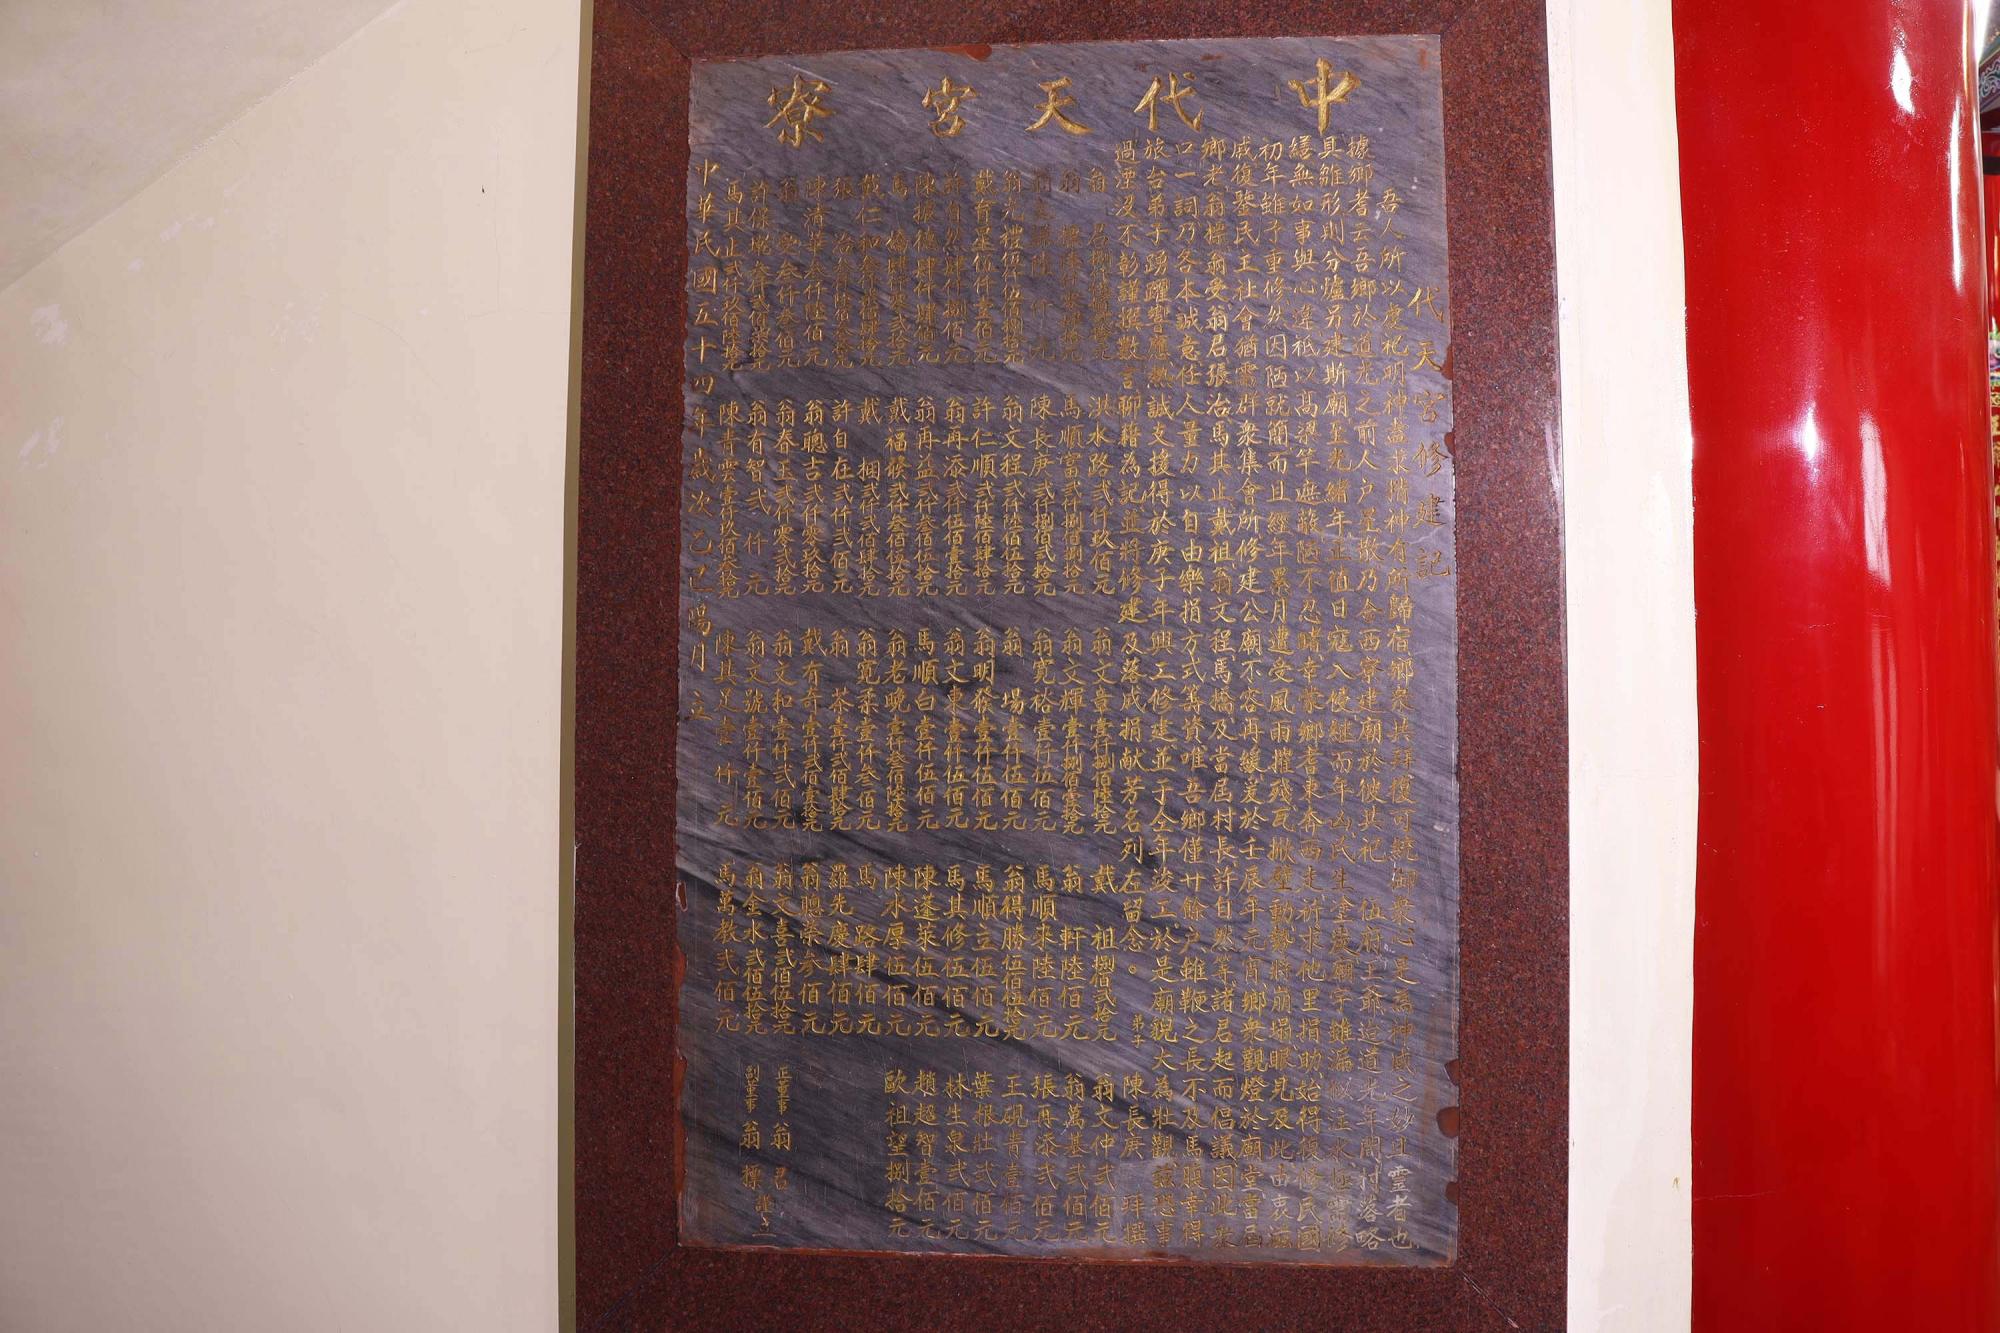 中代天宮寮
代天宮修建記
吾人所以虔祀明神蓋求精神有所歸宿鄉衆共拜復可統御衆心是為神威之妙且靈者也
據鄉耆云吾鄉於道光之前人户星散乃合西寮建廟於彼共祀 伍府王爺迨道光年間村落略
具雛形則分爐另建斯廟至光緒年正值日寇入侵繼而年凶民生塗炭廟宇雖漏似注水極需修
繕無如事與心違祗以高梁竿遮蔽陋不忍睹幸蒙鄉耆東奔西走祈求他里捐助始得複修民國
初年雖予重修然因陋就簡而且經年累月遭受風雨摧殘瓦掀壁動勢將崩塌眼見及此由衷滋
感復鑒民主社會猶需群衆集會所修建公廟不容再緩爰於壬辰年元宵鄉衆觀燈於廟堂當屆
鄉老翁標翁受翁君張冶馬其止戴祖翁文程馬橋及當屆村長許自然等諸君起而倡議因此衆
口一詞乃各本誠意任人量力以自由樂捐方式籌資唯吾鄉僅廿餘户雖鞭之長不及馬腹幸得
旅台弟子踴躍響應熱誠支援得於庚子年興工修建並于仝年竣工於是廟貌大為壯觀茲恐事
過湮沒不彰謹撰數言聊藉為記並將修建及落成捐献芳名列左留念。 弟子 陳長庚 拜撰
洪水路弍仟玖佰元
翁文章壹仟捌佰陸拾元
戴 祖捌佰弍拾元
翁文仲弍佰元
馬順當弍仟捌佰捌拾元
翁文輝壹仟捌佰壹拾元
翁 軒陸佰元
翁萬基弍佰元
陳長庚弍仟捌佰弍拾元
翁寬裕壹仟伍佰元
馬順來陸佰元
張再添弍佰元
翁光禮伍仟伍佰捌拾元
翁文程弍仟陸佰伍拾元
翁 場壹仟伍佰元
翁得勝伍佰伍拾元
王硯青壹佰元
戴育星伍仟壹佰元
許仁順弍仟陸佰肆拾元
翁明發壹仟伍佰元
馬順立伍佰元
葉根壯弍佰元
許自然肆仟捌佰元
翁再添弍仟伍佰壹拾元
翁文東壹仟伍佰元
馬其修伍佰元
林生泉弍佰元
陳振德肆仟肆佰元
翁再益弍仟叁佰伍拾元
馬順白壹仟伍佰元
陳蓬萊伍佰元
趙超智壹佰元
馬 橋肆仟零弍拾元
戴福條弍仟叁佰伍拾元
翁老晚壹仟叁佰陸拾元
陳水厚伍佰元
歐祖望捌拾元
戴 栶弍仟弍佰肆拾元
翁寬柔壹仟叁佰元
馬 路肆佰元
許自在弍仟弍佰元
翁 茶壹仟弍佰肆拾元
羅先慶肆佰元
陳清華叁仟伍佰元
翁聰吉弍仟零玖拾元
戴有奇壹仟弍佰壹拾元
翁聰榮参佰元
翁春王弍仟零弍拾元
翁文和壹仟弍佰元
翁文喜弍佰伍拾元
正董事 翁 君
翁有智弍 仟 元
翁文號壹仟壹佰元
翁金水弍佰伍拾元
副董事 翁 標 謹立
馬其止弍仟玖佰陸拾元
陳青雲壹仟玖佰叁拾元
陳其足壹 仟 元
馬萬教弍佰元
中華民國五十四年歲次乙己陽月 立